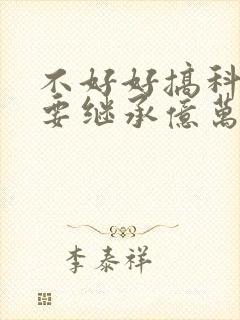 不好好搞科
要继承億萬
李泰祥